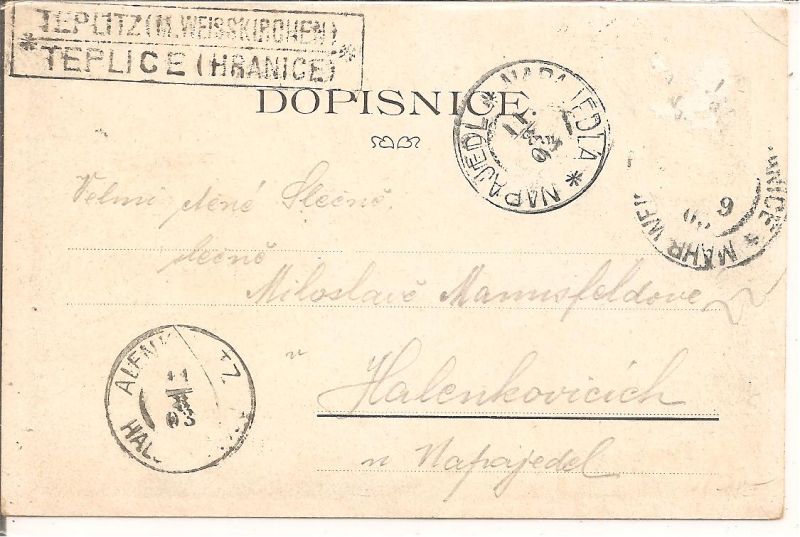 * TEPLITZ (M. WEISSKIRCHEN) *
TEPLICE (HRANICE)
DOPISNICE
NAPAJEDLA * NAPAJEDL *
MÄHR WEI
6
Velmi ctěné Slečně,
slečně
Miloslavě Mannsfeldove
v
Halenkovicích
u Napajedel
ALENK TZ
HAL
11
03